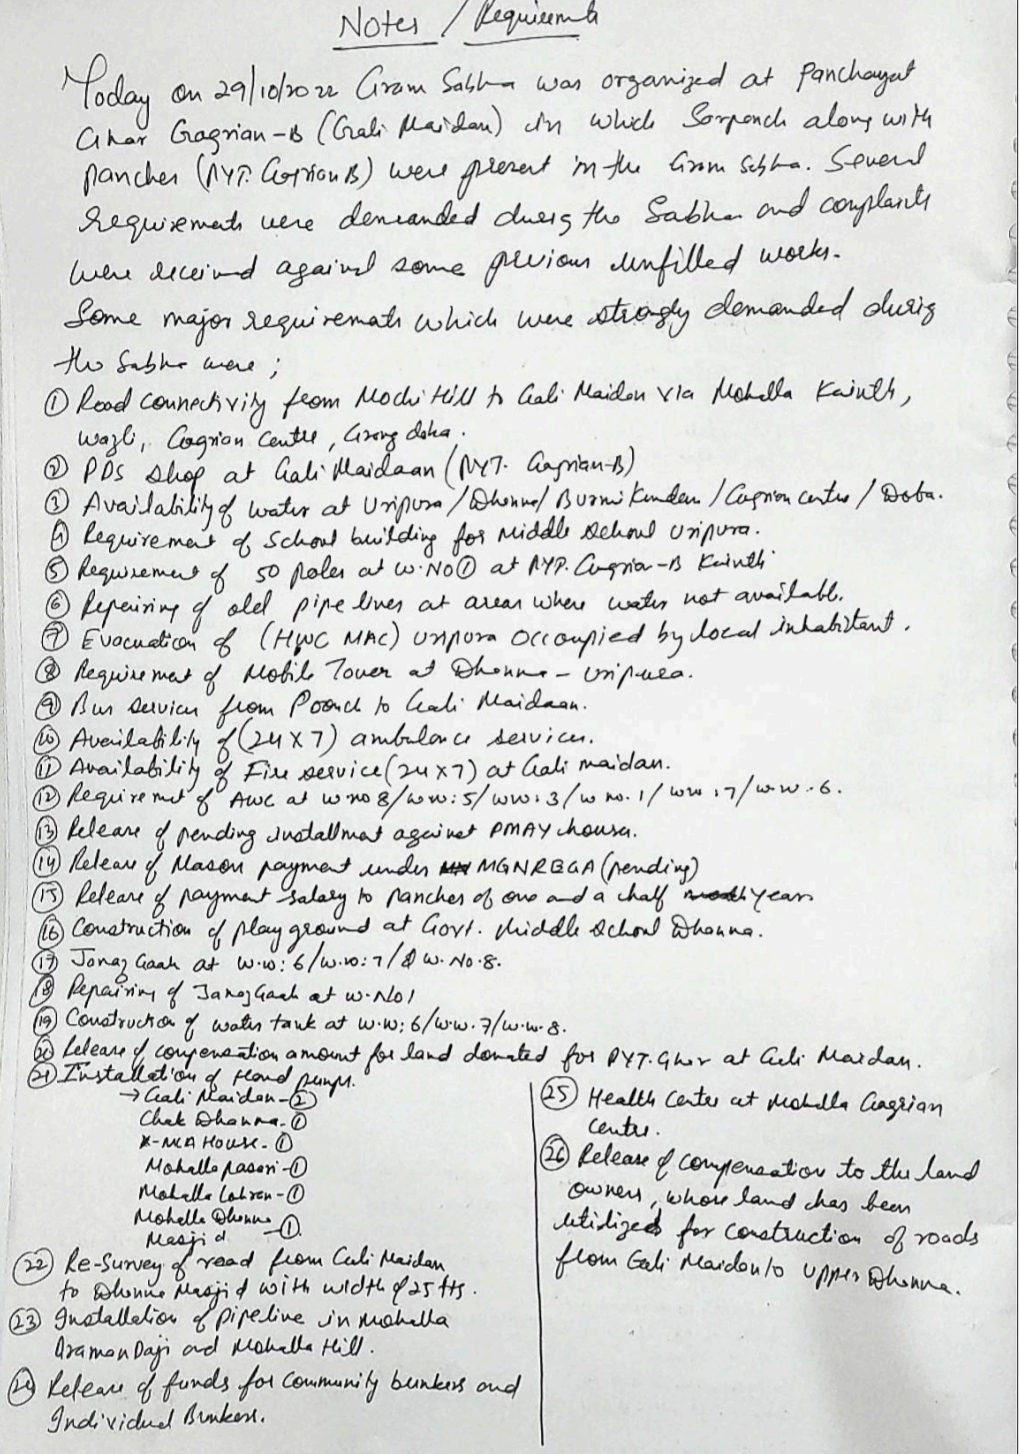 Notes / Requirements
Today on 29/10/2022 Gram Sabha was organized at Panchayat
Ghar Gagrian-B (Gali Maidan) in which Sarpanch along with
panches (PYT. Gagrian B) were present in the Gram Sabha. Several
requirements were demanded during the Sabha and complaints
were received against some previous unfilled works.
Some major requirements which were strongly demanded during
the Sabha were ;
① Road connectivity from Mochi Hill to Gali Maidan via Mohalla Kainth,
Wazli, Gagrian Centre,
② PDS shop at Gali Maidaan (PYT. Gagrian-B)
③ Availability of water at Uripura / Dhanna / Burmi Kundan / Gagrian centre / Doba.
④ Requirement of School building for Middle School Uripura.
⑤ Requirement of 50 poles at W.No ① at PYT. Gagrian-B Kainth
⑥ Repairing of old pipe lines at areas where water not available.
⑦ Evacuation of (HWC MAC) Uripura occoupied by local inhabitant.
⑧ Requirement of Mobile Tower at Dhanna - Uripura.
⑨ Bus services from Poonch to Gali Maidaan.
⑩ Availability of (24 x 7) ambulance services.
⑪ Availability of Fire service (24 x 7) at Gali maidan.
⑫ Requiremet of AWC at w no 8/w.w:5/w.w:3/w no.1/w.w:7/w.w.6.
⑬ Release of pending installment against PMAY houses.
⑭ Release of Mason payment under MGNREGA (pending)
⑮ Release of payment salary to panches of one and a half years
⑯ Construction of play ground at Govt. Middle School Dhanna.
⑰ Janaz Gaah at w.w:6/w.w:7/& W.No.8.
⑱ Repairing of Janaz Gaah at W.No 1
⑲ Construction of water tank at w.w:6/w.w.7/w.w.8.
⑳ Release of compensation amount for land donated for PYT. Ghar at Gali Maidan.
㉑ Installation of Hand pumps.
→ Gali Maidan - ②
Chak Dhanna - ①
X-MLA House - ①
Mohalla - ①
Mohalla Lohran - ①
Mohalla Dhanna
Masjid - ①
㉒ Re-Survey of road from Gali Maidan
to Dhanna Masjid with width of 25 fts.
㉓ Installation of Pipeline in Mohalla
Daji and Mohalla Hill.
㉔ Release of funds for Community bunkers and
Individual Bunkers.
㉕ Health Center at Mohalla Gagrian
Centre.
㉖ Release of compensation to the land
owners, whose land has been
utilized for construction of roads
from Gali Maidan to Upper Dhanna.